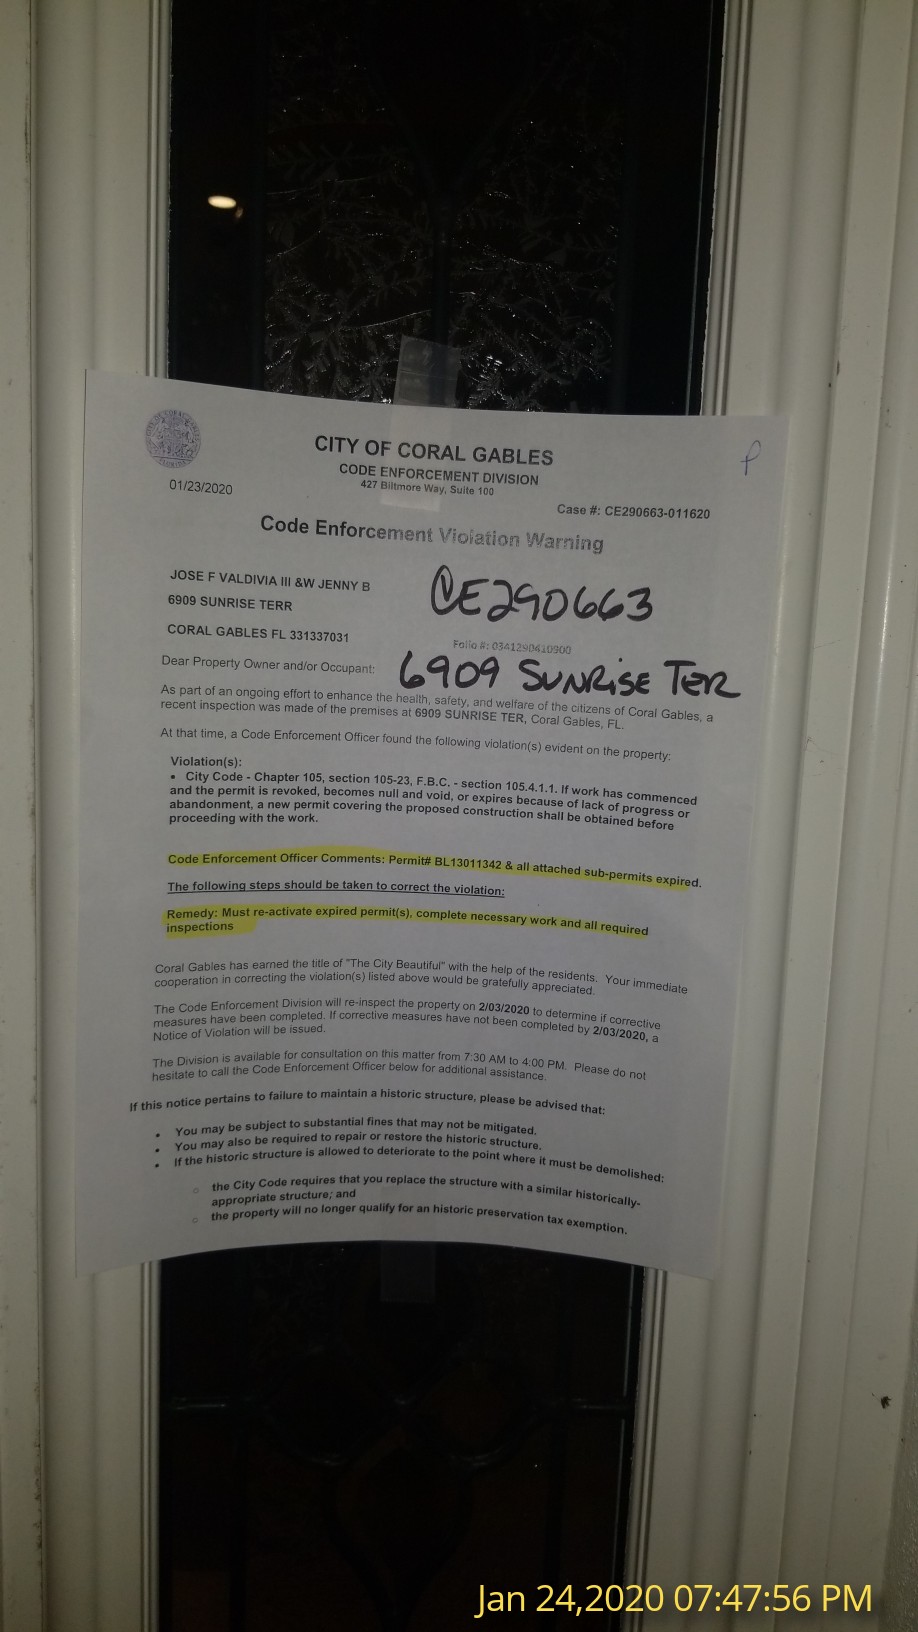 CITY OF CORAL GABLES
CODE ENFORCEMENT DIVISION
427 Biltmore Way, Suite 100
01/23/2020
Case #: CE290663-011620
Code Enforcement Violation Warning
JOSE F VALDIVIA III &W JENNY B
6909 SUNRISE TERR
CORAL GABLES FL 331337031
CE290663
Folio #: 0341290410900
6909 SUNRISE TER
Dear Property Owner and/or Occupant:
As part of an ongoing effort to enhance the health, safety, and welfare of the citizens of Coral Gables, a
recent inspection was made of the premises at 6909 SUNRISE TER, Coral Gables, FL.
At that time, a Code Enforcement Officer found the following violation(s) evident on the property:
Violation(s):
• City Code - Chapter 105, section 105-23, F.B.C. - section 105.4.1.1. If work has commenced
and the permit is revoked, becomes null and void, or expires because of lack of progress or
abandonment, a new permit covering the proposed construction shall be obtained before
proceeding with the work.
Code Enforcement Officer Comments: Permit# BL13011342 & all attached sub-permits expired.
The following steps should be taken to correct the violation:
Remedy: Must re-activate expired permit(s), complete necessary work and all required
inspections
Coral Gables has earned the title of "The City Beautiful" with the help of the residents. Your immediate
cooperation in correcting the violation(s) listed above would be gratefully appreciated.
The Code Enforcement Division will re-inspect the property on 2/03/2020 to determine if corrective
measures have been completed. If corrective measures have not been completed by 2/03/2020, a
Notice of Violation will be issued.
The Division is available for consultation on this matter from 7:30 AM to 4:00 PM. Please do not
hesitate to call the Code Enforcement Officer below for additional assistance.
If this notice pertains to failure to maintain a historic structure, please be advised that:
• You may be subject to substantial fines that may not be mitigated.
• You may also be required to repair or restore the historic structure.
• If the historic structure is allowed to deteriorate to the point where it must be demolished:
○ the City Code requires that you replace the structure with a similar historically-
appropriate structure; and
○ the property will no longer qualify for an historic preservation tax exemption.
Jan 24,2020 07:47:56 PM